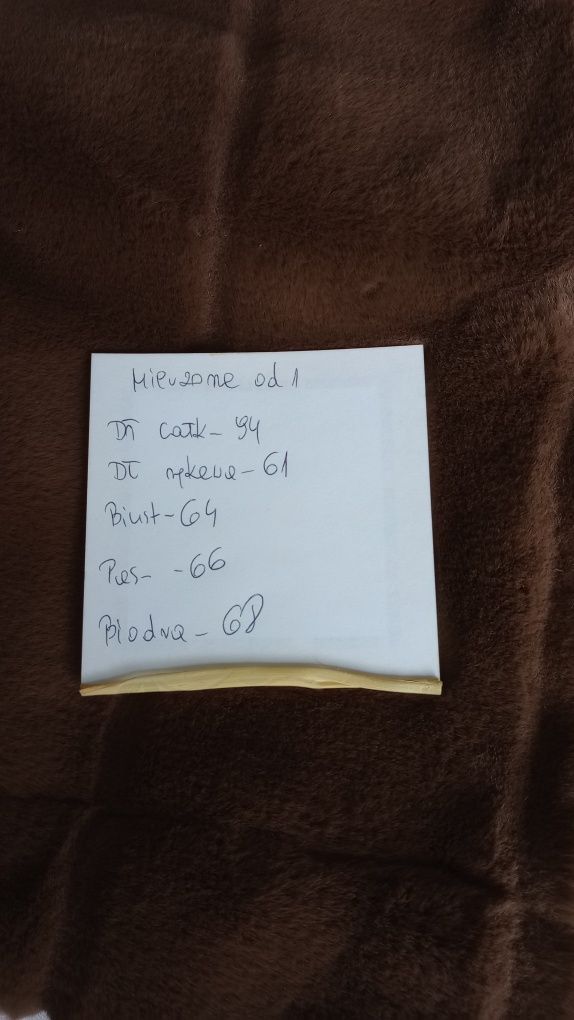 Mierzone od 1
Dł całk - 94
Dł rękawa - 61
Biust - 64
Pas - - 66
Biodra - 68